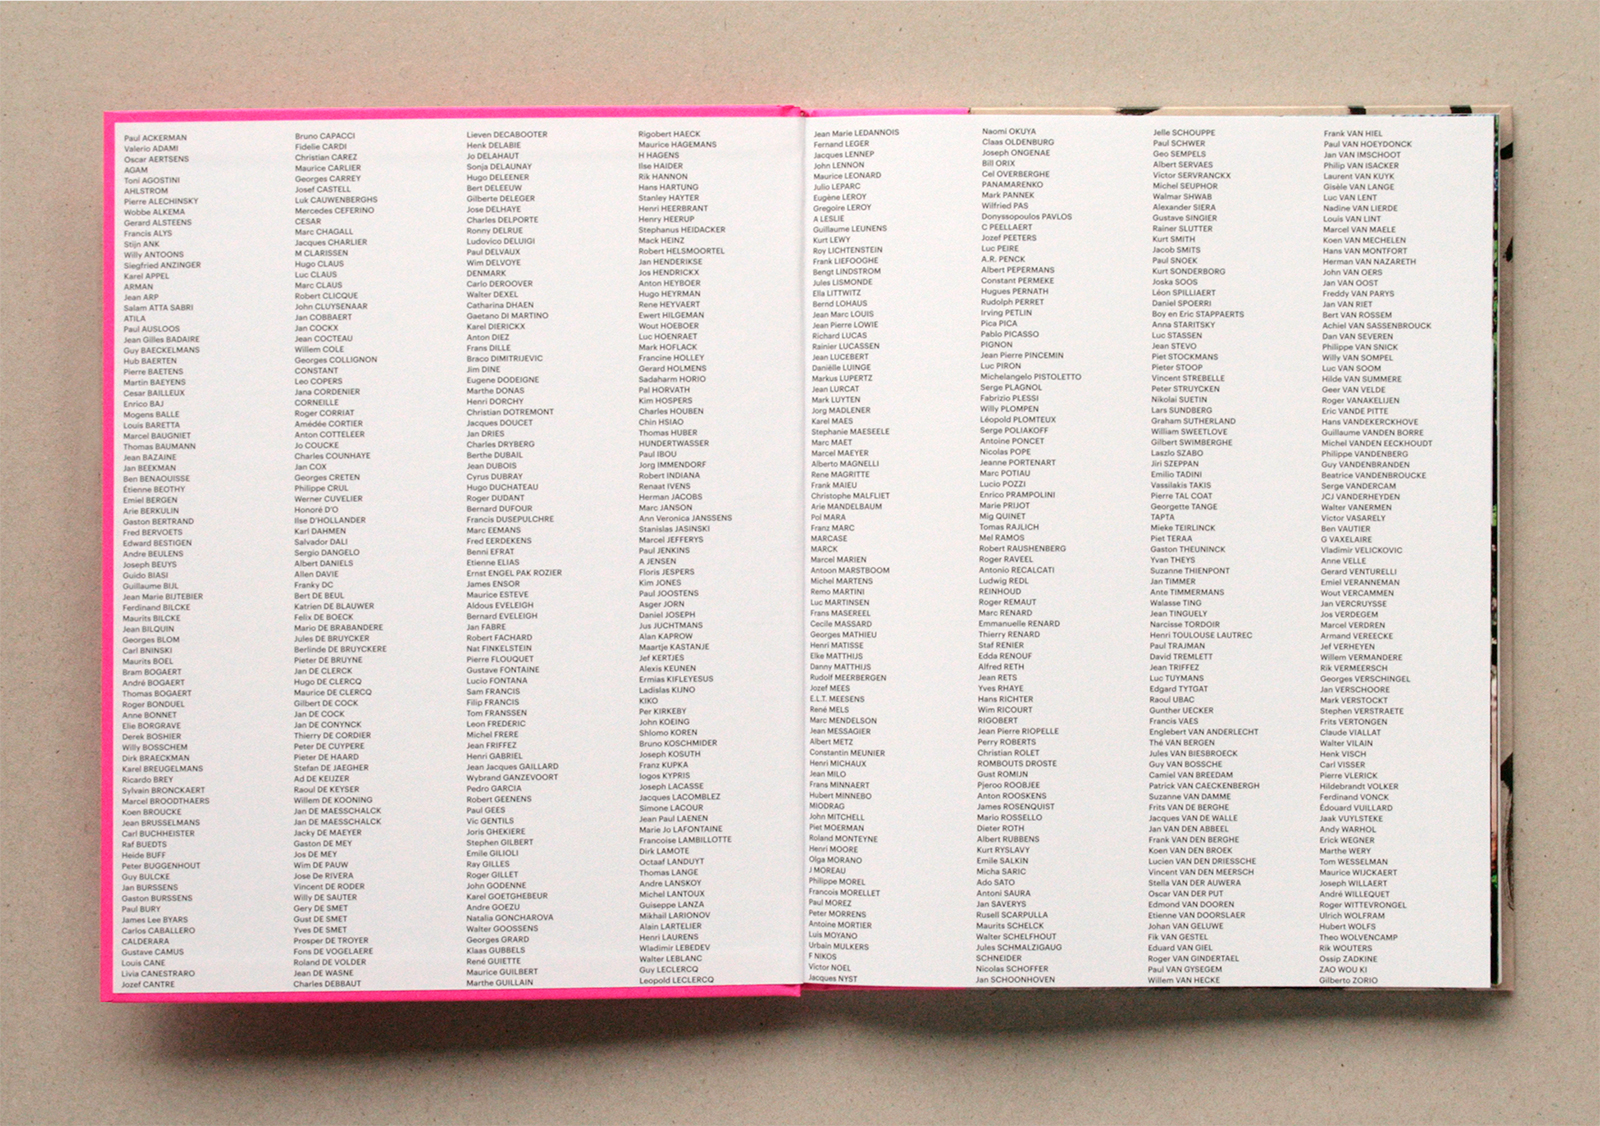 Paul ACKERMAN
Valerio ADAMI
Oscar AERTSENS
AGAM
Toni AGOSTINI
AHLSTROM
Pierre ALECHINSKY
Wobbe ALKEMA
Gerard ALSTEENS
Francis ALYS
Stijn ANK
Willy ANTOONS
Siegfried ANZINGER
Karel APPEL
ARMAN
Jean ARP
Salam ATTA SABRI
ATILA
Paul AUSLOOS
Jean Gilles BADAIRE
Guy BAECKELMANS
Hub BAERTEN
Pierre BAETENS
Martin BAEYENS
Cesar BAILLEUX
Enrico BAJ
Mogens BALLE
Louis BARETTA
Marcel BAUGNIET
Thomas BAUMANN
Jean BAZAINE
Jan BEEKMAN
Ben BENAOUISSE
Étienne BEOTHY
Emiel BERGEN
Arie BERKULIN
Gaston BERTRAND
Fred BERVOETS
Edward BESTIGEN
Andre BEULENS
Joseph BEUYS
Guido BIASI
Guillaume BIJL
Jean Marie BIJTEBIER
Ferdinand BILCKE
Maurits BILCKE
Jean BILQUIN
Georges BLOM
Carl BNINSKI
Maurits BOEL
Bram BOGAERT
André BOGAERT
Thomas BOGAERT
Roger BONDUEL
Anne BONNET
Elie BORGRAVE
Derek BOSHIER
Willy BOSSCHEM
Dirk BRAECKMAN
Karel BREUGELMANS
Ricardo BREY
Sylvain BRONCKAERT
Marcel BROODTHAERS
Koen BROUCKE
Jean BRUSSELMANS
Carl BUCHHEISTER
Raf BUEDTS
Heide BUFF
Peter BUGGENHOUT
Guy BULCKE
Jan BURSSENS
Gaston BURSSENS
Paul BURY
James Lee BYARS
Carlos CABALLERO
CALDERARA
Gustave CAMUS
Louis CANE
Livia CANESTRARO
Jozef CANTRE
Bruno CAPACCI
Fidelie CARDI
Christian CAREZ
Maurice CARLIER
Georges CARREY
Josef CASTELL
Luk CAUWENBERGHS
Mercedes CEFERINO
CESAR
Marc CHAGALL
Jacques CHARLIER
M CLARISSEN
Hugo CLAUS
Luc CLAUS
Marc CLAUS
Robert CLICQUE
John CLUYSENAAR
Jan COBBAERT
Jan COCKX
Jean COCTEAU
Willem COLE
Georges COLLIGNON
CONSTANT
Leo COPERS
Jana CORDENIER
CORNEILLE
Roger CORRIAT
Amédée CORTIER
Anton COTTELEER
Jo COUCKE
Charles COUNHAYE
Jan COX
Georges CRETEN
Philippe CRUL
Werner CUVELIER
Honoré D'O
Ilse D'HOLLANDER
Karl DAHMEN
Salvador DALI
Sergio DANGELO
Albert DANIELS
Allen DAVIE
Franky DC
Bert DE BEUL
Katrien DE BLAUWER
Felix DE BOECK
Mario DE BRABANDERE
Jules DE BRUYCKER
Berlinde DE BRUYCKERE
Pieter DE BRUYNE
Jan DE CLERCK
Hugo DE CLERCQ
Maurice DE CLERCQ
Gilbert DE COCK
Jan DE COCK
Jan DE CONYNCK
Thierry DE CORDIER
Peter DE CUYPERE
Pieter DE HAARD
Stefan DE JAEGHER
Ad DE KEIJZER
Raoul DE KEYSER
Willem DE KOONING
Jan DE MAESSCHALCK
Jan DE MAESSCHALCK
Jacky DE MAEYER
Gaston DE MEY
Jos DE MEY
Wim DE PAUW
Jose De RIVERA
Vincent DE RODER
Willy DE SAUTER
Gery DE SMET
Gust DE SMET
Yves DE SMET
Prosper DE TROYER
Fons DE VOGELAERE
Roland DE VOLDER
Jean DE WASNE
Charles DEBBAUT
Lieven DECABOOTER
Henk DELABIE
Jo DELAHAUT
Sonja DELAUNAY
Hugo DELEENER
Bert DELEEUW
Gilberte DELEGER
Jose DELHAYE
Charles DELPORTE
Ronny DELRUE
Ludovico DELUIGI
Paul DELVAUX
Wim DELVOYE
DENMARK
Carlo DEROOVER
Walter DEXEL
Catharina DHAEN
Gaetano DI MARTINO
Karel DIERICKX
Anton DIEZ
Frans DILLE
Braco DIMITRIJEVIC
Jim DINE
Eugene DODEIGNE
Marthe DONAS
Henri DORCHY
Christian DOTREMONT
Jacques DOUCET
Jan DRIES
Charles DRYBERG
Berthe DUBAIL
Jean DUBOIS
Cyrus DUBRAY
Hugo DUCHATEAU
Roger DUDANT
Bernard DUFOUR
Francis DUSEPULCHRE
Marc EEMANS
Fred EERDEKENS
Benni EFRAT
Etienne ELIAS
Ernst ENGEL PAK ROZIER
James ENSOR
Maurice ESTEVE
Aldous EVELEIGH
Bernard EVELEIGH
Jan FABRE
Robert FACHARD
Nat FINKELSTEIN
Pierre FLOUQUET
Gustave FONTAINE
Lucio FONTANA
Sam FRANCIS
Filip FRANCIS
Tom FRANSSEN
Leon FREDERIC
Michel FRERE
Jean FRIFFEZ
Henri GABRIEL
Jean Jacques GAILLARD
Wybrand GANZEVOORT
Pedro GARCIA
Robert GEENENS
Paul GEES
Vic GENTILS
Joris GHEKIERE
Stephen GILBERT
Emile GILIOLI
Ray GILLES
Roger GILLET
John GODENNE
Karel GOETGHEBEUR
Andre GOEZU
Natalia GONCHAROVA
Walter GOOSSENS
Georges GRARD
Klaas GUBBELS
René GUIETTE
Maurice GUILBERT
Marthe GUILLAIN
Rigobert HAECK
Maurice HAGEMANS
H HAGENS
Ilse HAIDER
Rik HANNON
Hans HARTUNG
Stanley HAYTER
Henri HEERBRANT
Henry HEERUP
Stephanus HEIDACKER
Mack HEINZ
Robert HELSMOORTEL
Jan HENDERIKSE
Jos HENDRICKX
Anton HEYBOER
Hugo HEYRMAN
Rene HEYVAERT
Ewert HILGEMAN
Wout HOEBOER
Luc HOENRAET
Mark HOFLACK
Francine HOLLEY
Gerard HOLMENS
Sadaharm HORIO
Pal HORVATH
Kim HOSPERS
Charles HOUBEN
Chin HSIAO
Thomas HUBER
HUNDERTWASSER
Paul IBOU
Jorg IMMENDORF
Robert INDIANA
Renaat IVENS
Herman JACOBS
Marc JANSON
Ann Veronica JANSSENS
Stanislas JASINSKI
Marcel JEFFERYS
Paul JENKINS
A JENSEN
Floris JESPERS
Kim JONES
Paul JOOSTENS
Asger JORN
Daniel JOSEPH
Jus JUCHTMANS
Alan KAPROW
Maartje KASTANJE
Jef KERTJES
Alexis KEUNEN
Ermias KIFLEYESUS
Ladislas KIJNO
KIKO
Per KIRKEBY
John KOEING
Shlomo KOREN
Bruno KOSCHMIDER
Joseph KOSUTH
Franz KUPKA
Iogos KYPRIS
Joseph LACASSE
Jacques LACOMBLEZ
Simone LACOUR
Jean Paul LAENEN
Marie Jo LAFONTAINE
Francoise LAMBILLOTTE
Dirk LAMOTE
Octaaf LANDUYT
Thomas LANGE
Andre LANSKOY
Michel LANTOUX
Guiseppe LANZA
Mikhail LARIONOV
Alain LARTELIER
Henri LAURENS
Wladimir LEBEDEV
Walter LEBLANC
Guy LECLERCQ
Leopold LECLERCQ
Jean Marie LEDANNOIS
Fernand LEGER
Jacques LENNEP
John LENNON
Maurice LEONARD
Julio LEPARC
Eugène LEROY
Gregoire LEROY
A LESLIE
Guillaume LEUNENS
Kurt LEWY
Roy LICHTENSTEIN
Frank LIEFOOGHE
Bengt LINDSTROM
Jules LISMONDE
Ella LITTWITZ
Bernd LOHAUS
Jean Marc LOUIS
Jean Pierre LOWIE
Richard LUCAS
Rainier LUCASSEN
Jean LUCEBERT
Daniëlle LUINGE
Markus LUPERTZ
Jean LURCAT
Mark LUYTEN
Jorg MADLENER
Karel MAES
Stephanie MAESEELE
Marc MAET
Marcel MAEYER
Alberto MAGNELLI
Rene MAGRITTE
Frank MAIEU
Christophe MALFLIET
Arie MANDELBAUM
Pol MARA
Franz MARC
MARCASE
MARCK
Marcel MARIEN
Antoon MARSTBOOM
Michel MARTENS
Remo MARTINI
Luc MARTINSEN
Frans MASEREEL
Cecile MASSARD
Georges MATHIEU
Henri MATISSE
Elke MATTHIJS
Danny MATTHIJS
Rudolf MEERBERGEN
Jozef MEES
E.L.T. MEESENS
René MELS
Marc MENDELSON
Jean MESSAGIER
Albert METZ
Constantin MEUNIER
Henri MICHAUX
Jean MILO
Frans MINNAERT
Hubert MINNEBO
MIODRAG
John MITCHELL
Piet MOERMAN
Roland MONTEYNE
Henri MOORE
Olga MORANO
J MOREAU
Philippe MOREL
Francois MORELLET
Paul MOREZ
Peter MORRENS
Antoine MORTIER
Luis MOYANO
Urbain MULKERS
F NIKOS
Victor NOEL
Jacques NYST
Naomi OKUYA
Claas OLDENBURG
Joseph ONGENAE
Bill ORIX
Cel OVERBERGHE
PANAMARENKO
Mark PANNEK
Wilfried PAS
Donyssopoulos PAVLOS
C PEELLAERT
Jozef PEETERS
Luc PEIRE
A.R. PENCK
Albert PEPERMANS
Constant PERMEKE
Hugues PERNATH
Rudolph PERRET
Irving PETLIN
Pica PICA
Pablo PICASSO
PIGNON
Jean Pierre PINCEMIN
Luc PIRON
Michelangelo PISTOLETTO
Serge PLAGNOL
Fabrizio PLESSI
Willy PLOMPEN
Léopold PLOMTEUX
Serge POLIAKOFF
Antoine PONCET
Nicolas POPE
Jeanne PORTENART
Marc POTIAU
Lucio POZZI
Enrico PRAMPOLINI
Marie PRIJOT
Mig QUINET
Tomas RAJLICH
Mel RAMOS
Robert RAUSHENBERG
Roger RAVEEL
Antonio RECALCATI
Ludwig REDL
REINHOUD
Roger REMAUT
Marc RENARD
Emmanuelle RENARD
Thierry RENARD
Staf RENIER
Edda RENOUF
Alfred RETH
Jean RETS
Yves RHAYE
Hans RICHTER
Wim RICOURT
RIGOBERT
Jean Pierre RIOPELLE
Perry ROBERTS
Christian ROLET
ROMBOUTS DROSTE
Gust ROMIJN
Pjeroo ROOBJEE
Anton ROOSKENS
James ROSENQUIST
Mario ROSSELLO
Dieter ROTH
Albert RUBBENS
Kurt RYSLAVY
Emile SALKIN
Micha SARIC
Ado SATO
Antoni SAURA
Jan SAVERYS
Rusell SCARPULLA
Maurits SCHELCK
Walter SCHELFHOUT
Jules SCHMALZIGAUG
SCHNEIDER
Nicolas SCHOFFER
Jan SCHOONHOVEN
Jelle SCHOUPPE
Paul SCHWER
Geo SEMPELS
Albert SERVAES
Victor SERVRANCKX
Michel SEUPHOR
Walmar SHWAB
Alexander SIERA
Gustave SINGIER
Rainer SLUTTER
Kurt SMITH
Jacob SMITS
Paul SNOEK
Kurt SONDERBORG
Joska SOOS
Léon SPILLIAERT
Daniel SPOERRI
Boy en Eric STAPPAERTS
Anna STARITSKY
Luc STASSEN
Jean STEVO
Piet STOCKMANS
Pieter STOOP
Vincent STREBELLE
Peter STRUYCKEN
Nikolai SUETIN
Lars SUNDBERG
Graham SUTHERLAND
William SWEETLOVE
Gilbert SWIMBERGHE
Laszlo SZABO
Jiri SZEPPAN
Emilio TADINI
Vassilakis TAKIS
Pierre TAL COAT
Georgette TANGE
TAPTA
Mieke TEIRLINCK
Piet TERAA
Gaston THEUNINCK
Yvan THEYS
Suzanne THIENPONT
Jan TIMMER
Ante TIMMERMANS
Walasse TING
Jean TINGUELY
Narcisse TORDOIR
Henri TOULOUSE LAUTREC
Paul TRAJMAN
David TREMLETT
Jean TRIFFEZ
Luc TUYMANS
Edgard TYTGAT
Raoul UBAC
Gunther UECKER
Francis VAES
Englebert VAN ANDERLECHT
Thé VAN BERGEN
Jules VAN BIESBROECK
Guy VAN BOSSCHE
Camiel VAN BREEDAM
Patrick VAN CAECKENBERGH
Suzanne VAN DAMME
Frits VAN DE BERGHE
Jacques VAN DE WALLE
Jan VAN DEN ABBEEL
Frank VAN DEN BERGHE
Koen VAN DEN BROEK
Lucien VAN DEN DRIESSCHE
Vincent VAN DEN MEERSCH
Stella VAN DER AUWERA
Oscar VAN DER PUT
Edmond VAN DOOREN
Etienne VAN DOORSLAER
Johan VAN GELUWE
Fik VAN GESTEL
Eduard VAN GIEL
Roger VAN GINDERTAEL
Paul VAN GYSEGEM
Willem VAN HECKE
Frank VAN HIEL
Paul VAN HOEYDONCK
Jan VAN IMSCHOOT
Philip VAN ISACKER
Laurent VAN KUYK
Gisèle VAN LANGE
Luc VAN LENT
Nadine VAN LIERDE
Louis VAN LINT
Marcel VAN MAELE
Koen VAN MECHELEN
Hans VAN MONTFORT
Herman VAN NAZARETH
John VAN OERS
Jan VAN OOST
Freddy VAN PARYS
Jan VAN RIET
Bert VAN ROSSEM
Achiel VAN SASSENBROUCK
Dan VAN SEVEREN
Philippe VAN SNICK
Willy VAN SOMPEL
Luc VAN SOOM
Hilde VAN SUMMERE
Geer VAN VELDE
Roger VANAKELIJEN
Eric VANDE PITTE
Hans VANDEKERCKHOVE
Guillaume VANDEN BORRE
Michel VANDEN EECKHOUDT
Philippe VANDENBERG
Guy VANDENBRANDEN
Beatrice VANDENBROUCKE
Serge VANDERCAM
JCJ VANDERHEYDEN
Walter VANERMEN
Victor VASARELY
Ben VAUTIER
G VAXELAIRE
Vladimir VELICKOVIC
Anne VELLE
Gerard VENTURELLI
Emiel VERANNEMAN
Wout VERCAMMEN
Jan VERCRUYSSE
Jos VERDEGEM
Marcel VERDREN
Armand VEREECKE
Jef VERHEYEN
Willem VERMANDERE
Rik VERMEERSCH
Georges VERSCHINGEL
Jan VERSCHOORE
Mark VERSTOCKT
Stephen VERSTRAETE
Frits VERTONGEN
Claude VIALLAT
Walter VILAIN
Henk VISCH
Carl VISSER
Pierre VLERICK
Hildebrandt VOLKER
Ferdinand VONCK
Édouard VUILLARD
Jaak VUYLSTEKE
Andy WARHOL
Erick WEGNER
Marthe WERY
Tom WESSELMAN
Maurice WIJCKAERT
Joseph WILLAERT
André WILLEQUET
Roger WITTEVRONGEL
Ulrich WOLFRAM
Hubert WOLFS
Theo WOLVENCAMP
Rik WOUTERS
Ossip ZADKINE
ZAO WOU KI
Gilberto ZORIO